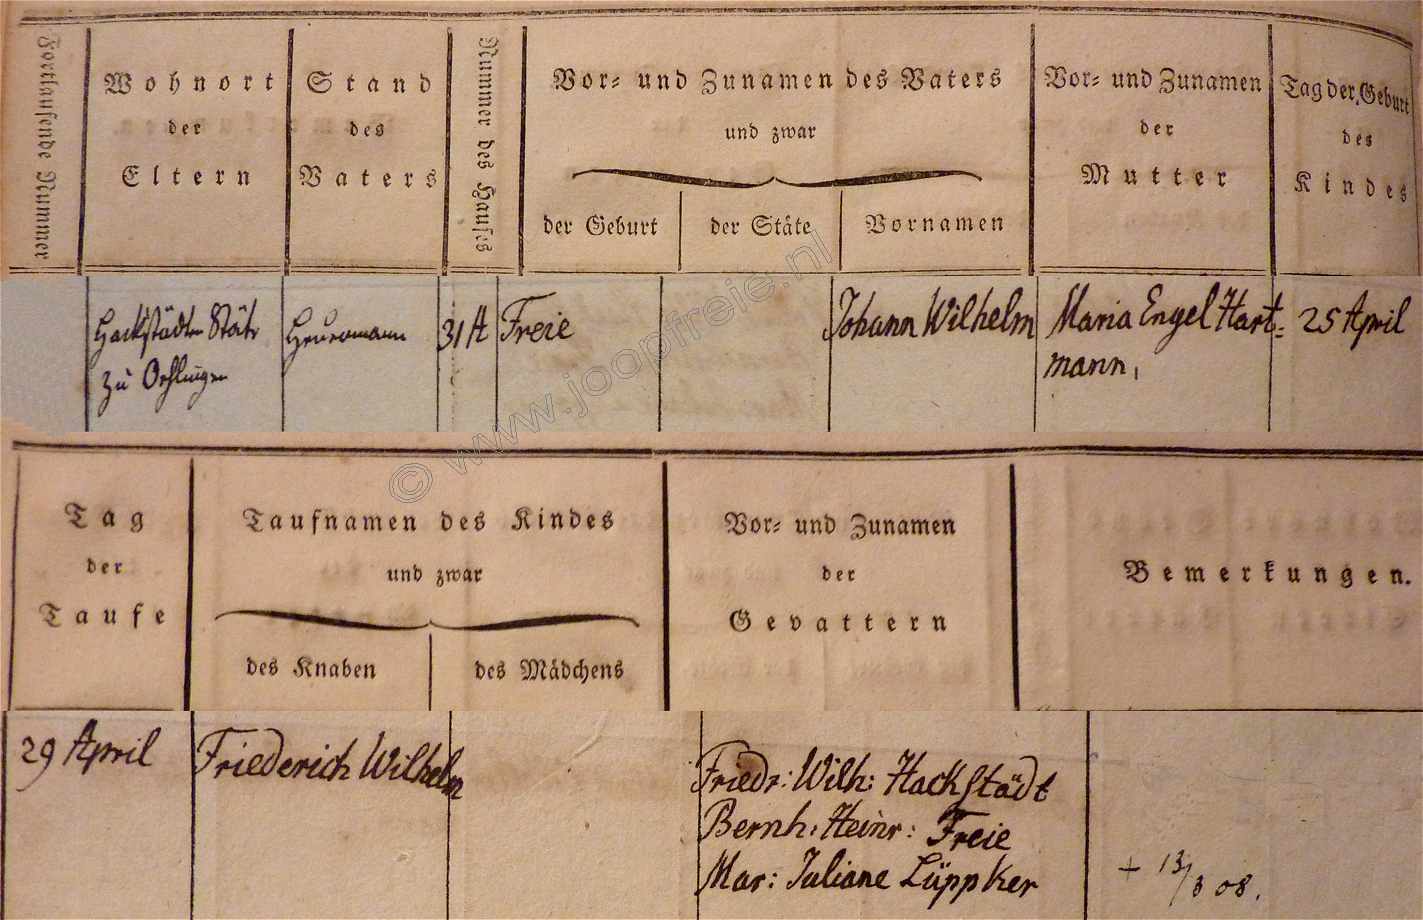 Fortlaufende Nummer
Wohnort
der
Eltern
Stand
des
Vaters
Nummer des Hauses
Vor- und Zunamen des Vaters
und zwar
der Geburt
der Stäte
Vornamen
Vor- und Zunamen
der
Mutter
Tag der Geburt
des
Kindes
Hackstädten Stäte
zu Oehlingen
Heuermann
31 A
Freie
Johann Wilhelm
Maria Engel Hart-
mann,
25 April
© www.joopfreie.nl
Tag
der
Taufe
Taufnamen des Kindes
und zwar
des Knaben
des Mädchens
Vor- und Zunamen
der
Gevattern
Bemerkungen.
29 April
Friederich Wilhelm
Friedr: Wilh: Hackstädt
Bernh: Heinr: Freie
Mar: Juliane Lüppker
+ 13/3 08.